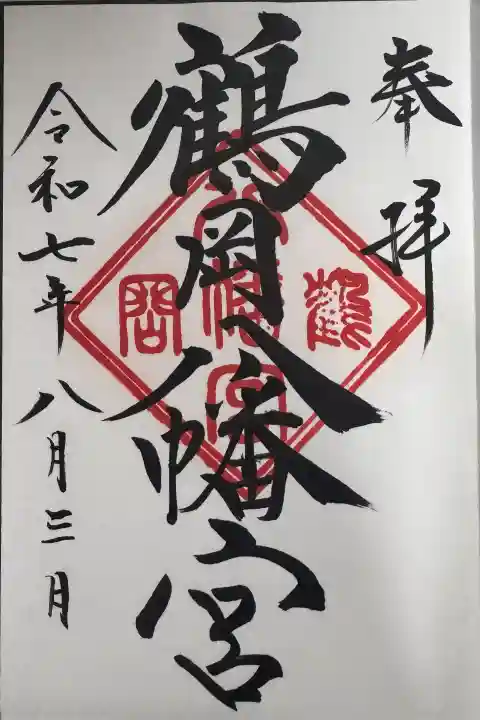 奉拝
鶴岡八幡宮
令和七年八月三日
鶴
八幡宮
岡